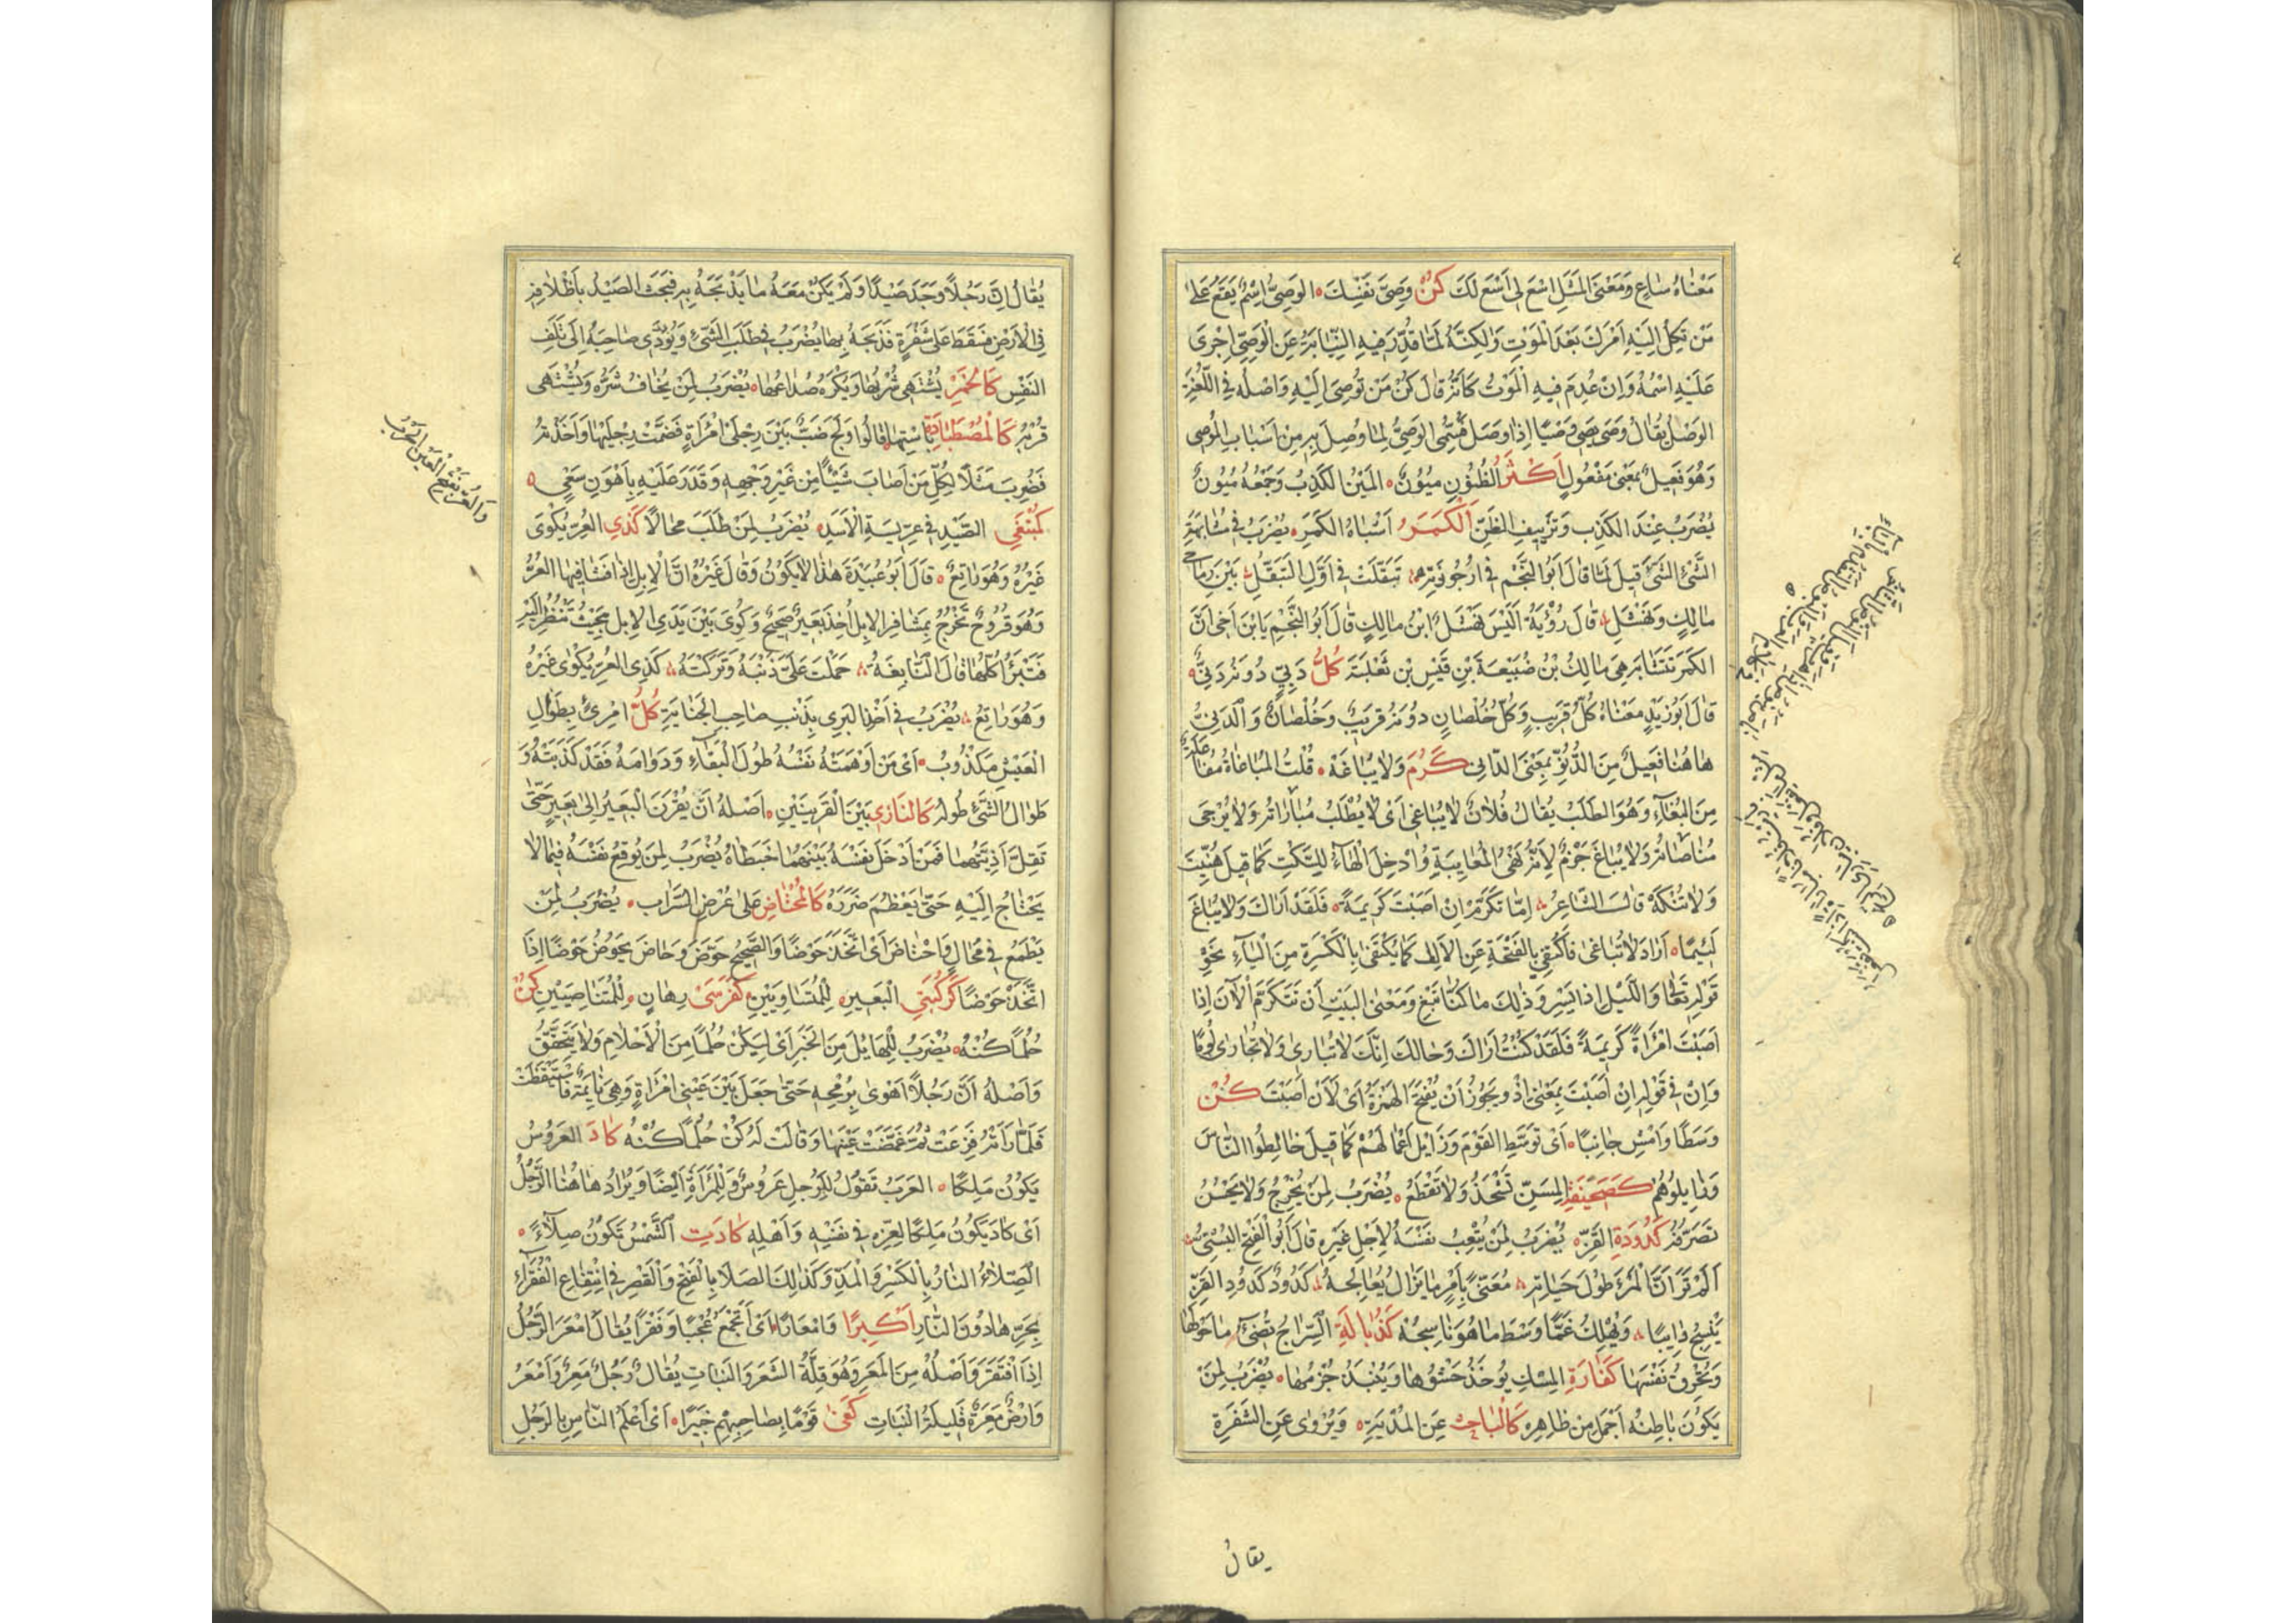 مَعْنَاهُ سَاعٍ وَمَعْنَى الْمَثَلِ اسْعَ لِي اَسْعَ لَكَ كُنْ وَصِيَّ نَفْسِكَ الوَصِيُّ اِسْمٌ يَقَعُ عَلَى
مَنْ تَكِلُ اِلَيْهِ اَمْرَكَ بَعْدَ الْمَوْتِ وَلٰكِنَّهُ لَمَّا قُدِّرَ فِيهِ النِّيَابَةُ عَنِ الْوَصِيِّ اِجْرَى
عَلَيْهِ اسْمُهُ وَاِنْ عُدِمَ فِيهِ الْمَوْتُ كَاَنَّهُ قَالَ كُنْ مَنْ تُوصِي اِلَيْهِ وَاَصْلُهُ فِي اللُّغَةِ
الوَصْلُ يُقَالُ وَصَى يَصِي وَصْيًا اِذَا وَصَلَ فَسُمِّيَ الوَصِيُّ لِمَا وُصِلَ بِهِ مِنْ اَسْبَابِ المُوصِي
وَهُوَ فَعِيلٌ بِمَعْنَى مَفْعُولٍ اَكْثَرُ الظُّنُونِ مُيُونٌ المَيْنُ الكَذِبُ وَجَمْعُهُ مُيُونٌ
يُضْرَبُ عِنْدَ الكَذِبِ وَتَزْيِيفِ الظَّنِّ اَلْكَمَرُ اَشْبَاهُ الكَمَرِ يُضْرَبُ فِي مُشَابَهَةِ
الشَّيْءِ الشَّيْءَ قِيلَ لَمَّا قَالَ اَبُو النَّجْمِ فِي اُرْجُوزَتِهِ تَبَقَّلَتْ فِي اَوَّلِ التَّبَقُّلِ بَيْنَ رِمَاحَيْ
مَالِكٍ وَنَهْشَلِ قَالَ رُؤْبَةُ اَلَيْسَ نَهْشَلُ ابْنَ مَالِكٍ قَالَ اَبُو النَّجْمِ يَا بْنَ اَخِي اَنَّ
الكَمَرَ تَتَشَابَهُ هِيَ مَالِكُ بْنُ ضُبَيْعَةَ بْنِ قَيْسِ بْنِ ثَعْلَبَةَ كُلُّ دَنِيٍّ دُونَهُ دَنِيٌّ
قَالَ اَبُو زَيْدٍ مَعْنَاهُ كُلُّ قَرِيبٍ وَكُلُّ خُلْصَانٍ دُونَهُ قَرِيبٌ وَخُلْصَانٌ وَالدَّنِيُّ
هَاهُنَا فَعِيلٌ مِنَ الدُّنُوِّ بِمَعْنَى الدَّانِي كَرُمَ وَلَا يُبَاغَهْ قُلْتُ المُبَاغَاةُ مُفَاعَلَةٌ
مِنَ البُغَاءِ وَهُوَ الطَّلَبُ يُقَالُ فُلَانٌ لَا يُبَاغَى اَيْ لَا يُطْلَبُ مُبَارَاتُهُ وَلَا يُرْجَى
مُنَاصَاتُهُ وَلَا يُبَاغَ جَزْمٌ لِاَنَّهُ نَهْيُ المُغَايَبَةِ وَاُدْخِلَ الْهَاءُ لِلسَّكْتِ كَمَا قِيلَ هُنِّيتَ
وَلَا تُنْكَهْ قَالَ الشَّاعِرُ اِمَّا تَكَرَّمْ اِنْ اَصَبْتَ كَرِيمَةً فَلَقَدْ اَرَاكَ وَلَا تُبَاغَ
لَئِيمًا اَرَادَ لَا تُبَاغَى فَاكْتَفَى بِالْفَتْحَةِ عَنِ الاَلِفِ كَمَا يُكْتَفَى بِالْكَسْرَةِ مِنَ الْيَاءِ نَحْوِ
قَوْلِهِ تَعَالَى وَاللَّيْلِ اِذَا يَسْرِ وَذٰلِكَ مَا كُنَّا نَبْغِ وَمَعْنَى البَيْتِ اَنْ تَتَكَرَّمِ الْآنَ اِذَا
اَصَبْتَ امْرَاَةً كَرِيمَةً فَلَقَدْ كُنْتُ اَرَاكَ وَحَالُكَ اِنَّكَ لَا تُبَارَى وَلَا تُجَارَى لُومًا
وَاِنْ فِي قَوْلِهِ اِنْ اَصَبْتَ بِمَعْنَى اِذْ وَيَجُوزُ اَنْ يُفْتَحَ الهَمْزَةُ اَيْ لَاَنْ اَصَبْتَ كُنْ
وَسَطًا وَامْشِ جَانِبًا اَيْ تَوَسَّطِ القَوْمَ وَزَايِلْ اَعْمَالَهُمْ كَمَا قِيلَ خَالِطُوا النَّاسَ
وَزَايِلُوهُمْ كَصَحِيفَةِ المِسَنِّ تَشْحَذُ وَلَا تَقْطَعُ يُضْرَبُ لِمَنْ يُخَرِّجُ وَلَا يَحْسُنُ
تَصَرُّفُهُ كَدُودَةِ القَزِّ يُضْرَبُ لِمَنْ يُتْعِبُ نَفْسَهُ لِاَجْلِ غَيْرِهِ قَالَ اَبُو الْفَتْحِ البُسْتِيُّ
اَلَمْ تَرَ اَنَّ الْمَرْءَ طُولَ حَيَاتِهِ مُعَنًّى بِاَمْرٍ مَا يَزَالُ يُعَالِجُهُ كَدُودٍ كَدُودِ القَزِّ
يَنْسِجُ دَائِبًا وَيَهْلِكُ غَمًّا وَسْطَ مَا هُوَ نَاسِجُهُ كَذُبَالَةِ السِّرَاجِ تُضِيءُ مَا حَوْلَهَا
وَتُحْرِقُ نَفْسَهَا كَفَارَةِ المِسْكِ يُؤْخَذُ حَشْوُهَا وَيُنْبَذُ جُرْمُهَا يُضْرَبُ لِمَنْ
يَكُونُ بَاطِنُهُ اَجْمَلَ مِنْ ظَاهِرِهِ كَالْبَاحِثِ عَنِ المُدْيَةِ وَيُرْوَى عَنِ الشَّفْرَةِ
يقالُ
يُقَالُ اِنَّ رَجُلًا وَجَدَ صَيْدًا وَلَمْ يَكُنْ مَعَهُ مَا يَذْبَحُهُ بِهِ فَبَحَثَ الصَّيْدُ بِاَظْلَافِهِ
فِي الْاَرْضِ فَسَقَطَ عَلَى شَفْرَةٍ فَذَبَحَهُ بِهَا يُضْرَبُ فِي طَلَبِ الشَّيْءِ وَيُؤَدِّي صَاحِبَهُ اِلَى تَلَفِ
النَّفْسِ كَالْخَمْرِ يُشْتَهَى شُرْبُهَا وَيُكْرَهُ صُدَاعُهَا يُضْرَبُ لِمَنْ يُخَافُ شَرُّهُ وَيُشْتَهَى
قُرْبُهُ كَالْمُصْطَادَةِ بِاسْتِهَا قَالُوا وَلَجَ ضَبٌّ بَيْنَ رِجْلَيْ امْرَاَةٍ فَضَمَّتْ رِجْلَيْهَا وَاَخَذَتْهُ
فَضُرِبَ مَثَلًا لِكُلِّ مَنْ اَصَابَ شَيْئًا مِنْ غَيْرِ وَجْهِهِ وَقَدَرَ عَلَيْهِ بِاَهْوَنِ سَعْيٍ
كَمُبْتَغِي الصَّيْدِ فِي عِرِّيسَةِ الْاَسَدِ يُضْرَبُ لِمَنْ طَلَبَ مَحَالًا كَذِي العُرِّ يُكْوَى
غَيْرُهُ وَهُوَ رَاتِعٌ قَالَ اَبُو عُبَيْدَةَ هٰذَا لَا يَكُونُ وَقَالَ غَيْرُهُ اِنَّ الْاِبِلَ اِذَا فَشَا فِيهَا العُرُّ
وَهُوَ قُرُوحٌ تَخْرُجُ بِمَشَافِرِ الاِبِلِ اُخِذَ بَعِيرٌ صَحِيحٌ وَكُوِيَ بَيْنَ يَدَيِ الاِبِلِ بِحَيْثُ تَنْظُرُ اِلَيْهِ
فَتَبْرَاُ كُلُّهَا قَالَ النَّابِغَةُ حَمَلْتَ عَلَيَّ ذَنْبَهُ وَتَرَكْتَهُ كَذِي العُرِّ يُكْوَى غَيْرُهُ
وَهُوَ رَاتِعٌ يُضْرَبُ فِي اَخْذِ البَرِيءِ بِذَنْبِ صَاحِبِ الْجِنَايَةِ كُلُّ امْرِئٍ بِطُوَالِ
الْعَيْشِ مَكْذُوبٌ اَيْ مَنْ اَوْهَمَتْهُ نَفْسُهُ طُولَ الْبَقَاءِ وَدَوَامَهُ فَقَدْ كَذَبَتْهُ وَ
طَوَالُ الشَّيْءِ طُولُهُ كَالنَّازِي بَيْنَ الْقَرِينَيْنِ اَصْلُهُ اَنْ يُقْرَنَ الْبَعِيرُ اِلَى بَعِيرٍ حَتَّى
تَقِلَّ اَذِيَّتُهُمَا فَمَنْ اَدْخَلَ نَفْسَهُ بَيْنَهُمَا خَبَطَاهُ يُضْرَبُ لِمَنْ يُوقِعُ نَفْسَهُ فِيمَا لَا
يَحْتَاجُ اِلَيْهِ حَتَّى يَعْظُمَ ضَرَرُهُ كَالْمُحْتَاضِ عَلَى عُرْضِ السَّرَابِ يُضْرَبُ لِمَنْ
يَطْمَعُ فِي مُحَالٍ وَاحْتَاضَ اَيْ اتَّخَذَ حَوْضًا وَالصَّحِيحُ حَوَّضَ وَحَاضَ يَحُوضُ حَوْضًا اِذَا
اتَّخَذَ حَوْضًا كَرُكْبَتَيِ الْبَعِيرِ لِلْمُتَسَاوِيَيْنِ كَفَرَسَيْ رِهَانٍ لِلْمُتَنَاصِيَيْنِ كُنْ
حُلْمًا كُنْهُ يُضْرَبُ لِلْهَائِلِ مِنَ الْخَبَرِ اَيْ لِيَكُنْ حُلْمًا مِنَ الْاَحْلَامِ وَلَا يَتَحَقَّقُ
وَاَصْلُهُ اَنَّ رَجُلًا اَهْوَى بِرُمْحِهِ حَتَّى جَعَلَ بَيْنَ عَيْنَيْ امْرَاَةٍ وَهِيَ نَائِمَةٌ فَاسْتَيْقَظَتْ
فَلَمَّا رَاَتْهُ فَزِعَتْ ثُمَّ غَمَّضَتْ عَيْنَهَا وَقَالَتْ لَهُ كُنْ حُلْمًا كُنْهُ كَادَ العَرُوسُ
يَكُونُ مَلِكًا العَرَبُ تَقُولُ لِلرَّجُلِ عَرُوسٌ وَلِلْمَرْاَةِ اَيْضًا وَيُرَادُ هَاهُنَا الرَّجُلُ
اَيْ كَادَ يَكُونُ مَلِكًا لِعِزِّهِ فِي نَفْسِهِ وَاَهْلِهِ كَادَتِ الشَّمْسُ تَكُونُ صِلَاءً
الصِّلَاءُ النَّارُ بِالْكَسْرِ وَالْمَدِّ وَكَذٰلِكَ الصَّلَا بِالْفَتْحِ وَالْقَصْرِ فِي انْتِفَاعِ الْفُقَرَاءِ
بِحَرِّهَا دُونَ النَّارِ اَكِبْرًا وَامْعَارًا اَيْ اَتَجْمَعُ عُجْبًا وَفَقْرًا يُقَالُ اَمْعَرَ الرَّجُلُ
اِذَا افْتَقَرَ وَاَصْلُهُ مِنَ المَعَرِ وَهُوَ قِلَّةُ الشَّعَرِ وَالنَّبَاتِ يُقَالُ رَجُلٌ مَعِرٌ وَاَمْعَرُ
وَاَرْضٌ مَعِرَةٌ قَلِيلَةُ النَّبَاتِ كَفَى قَوْمًا بِصَاحِبِهِمْ خَبِيرًا اَيْ اَعْلَمُ النَّاسِ بِالرَّجُلِ
وَالعُرُّ بفتح العين الجَرَبُ